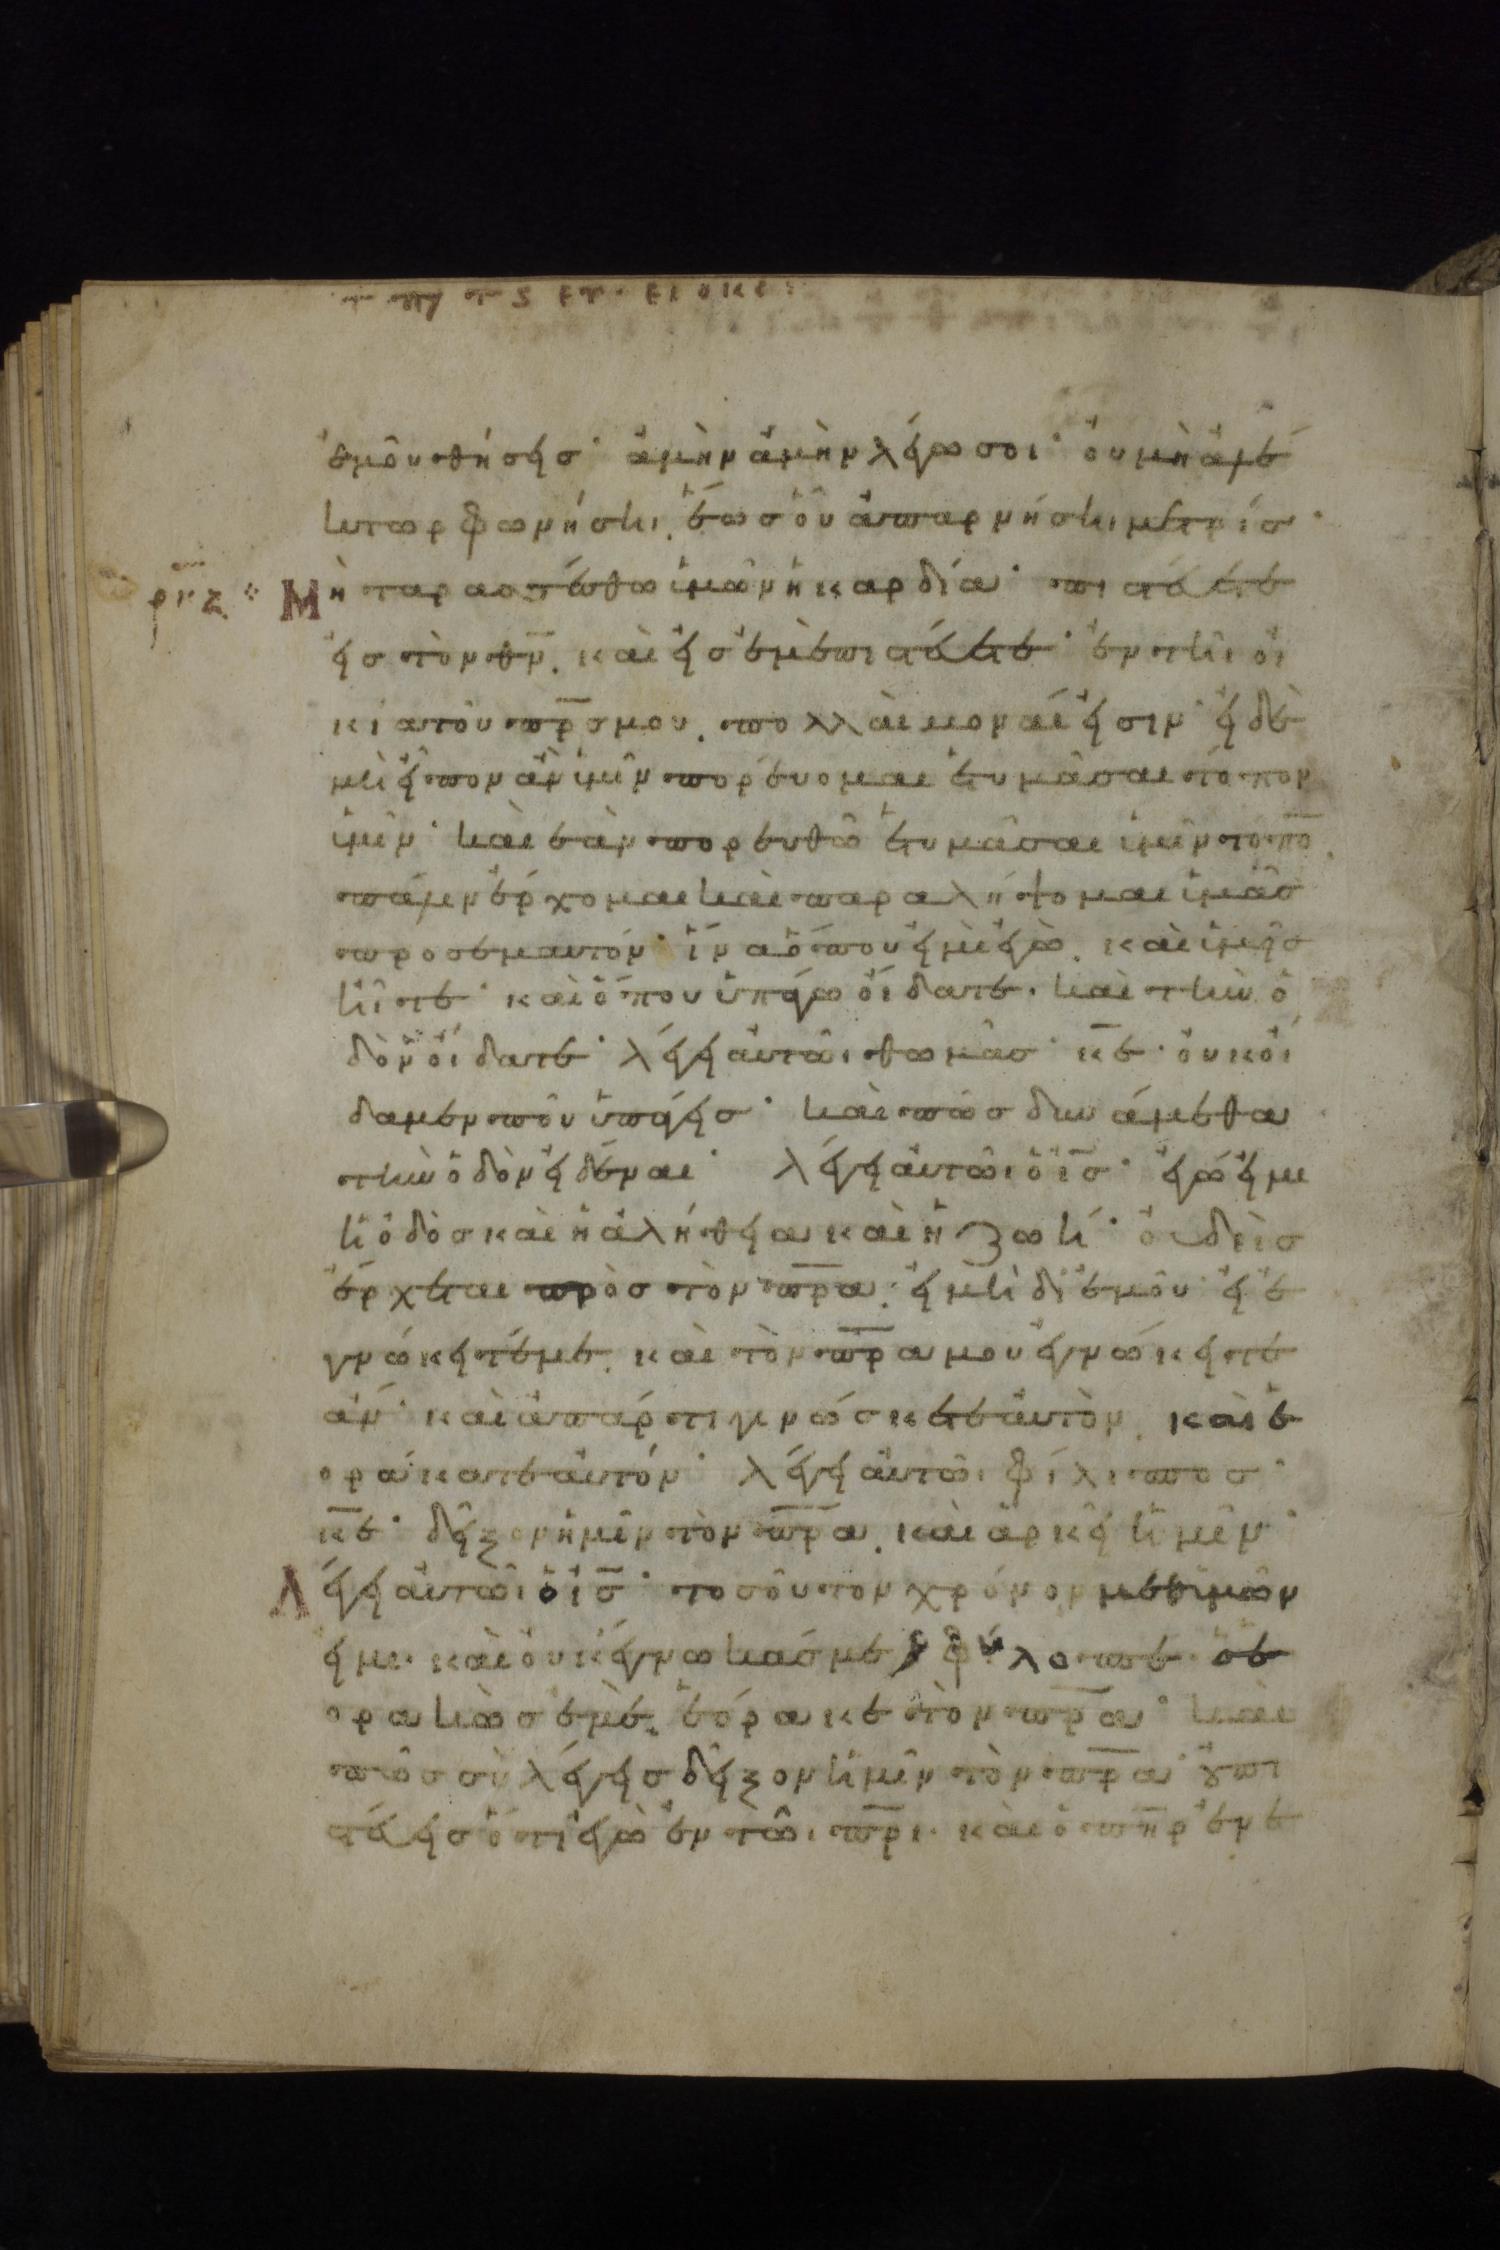 ἐμοῦ θήσεις· ἀμὴν ἀμὴν λέγω σοι· οὐ μὴ ἀλέ
κτωρ φωνήσηι, ἕως οὗ ἀπαρνήσηι με τρίς·
ρκζ Μὴ ταρασσέσθω ὑμῶν ἡ καρδία· πιστεύετε
εἰς τὸν θν̅, καὶ εἰς ἐμὲ πιστεύετε· ἐν τῆι οἰ
κία τοῦ πρ̅ς μου, πολλαὶ μοναί εἰσιν· εἰ δὲ
μὴ εἶπον ἂν ὑμῖν πορεύομαι ἑτοιμᾶσαι τόπον
ὑμῖν· καὶ ἐὰν πορευθῶ ἑτυμᾶσαι ὑμῖν τόπο̅
πάλιν ἔρχομαι καὶ παραλήψομαι ὑμᾶς
προς ἐμαυτόν· ἵνα ὅπου εἰμὶ ἐγὼ, καὶ ὑμεῖς
ἦτε· καὶ ὅπου ὑπάγω οἴδατε· καὶ τὴν ὁ
δὸν οἴδατε· λέγει αὐτῶι θωμᾶς· κε̅· οὐκ οἴ
δαμεν ποῦ ὑπάγεις· καὶ πῶς δυνάμεθα
τὴν ὁδὸν εἰδέναι· λέγει αὐτῶι ὁ ις̅· ἐγώ εἰμι
ἡ ὁδὸς καὶ ἡ ἀλήθεια καὶ ἡ ζωή· οὐδεὶς
ἔρχεται πρὸς τὸν πρ̅α, εἰ μὴ δι' ἐμοῦ· εἰ ἐ
γνώκειτέ με, καὶ τὸν πρ̅α μου ἐγνώκειτε
ἄν· καὶ ἀπάρτι γινώσκετε αὐτὸν, καὶ ἑ
ωράκατε αὐτόν· λέγει αὐτῶι φίλιππος·
κε̅· δεῖξον ἡμῖν τὸν πρ̅α, καὶ ἀρκεῖ ἡμῖν·
Λέγει αὐτῶι ὁ ις̅· τοσοῦτον χρόνον μεθ' ὑμῶν
εἰμι· καὶ οὐκ ἔγνωκάς με φίλιππε· ὁ ἑ
ορακὼς ἐμὲ, ἑόρακε τὸν πρ̅α· καὶ
πῶς σὺ λέγεις δεῖξον ἡμῖν τὸν πρ̅α· οὐ πι
στεύεις ὅτι ἐγὼ ἐν τῶι πρ̅ι· καὶ ὁ πη̅ρ ἐν ἐ